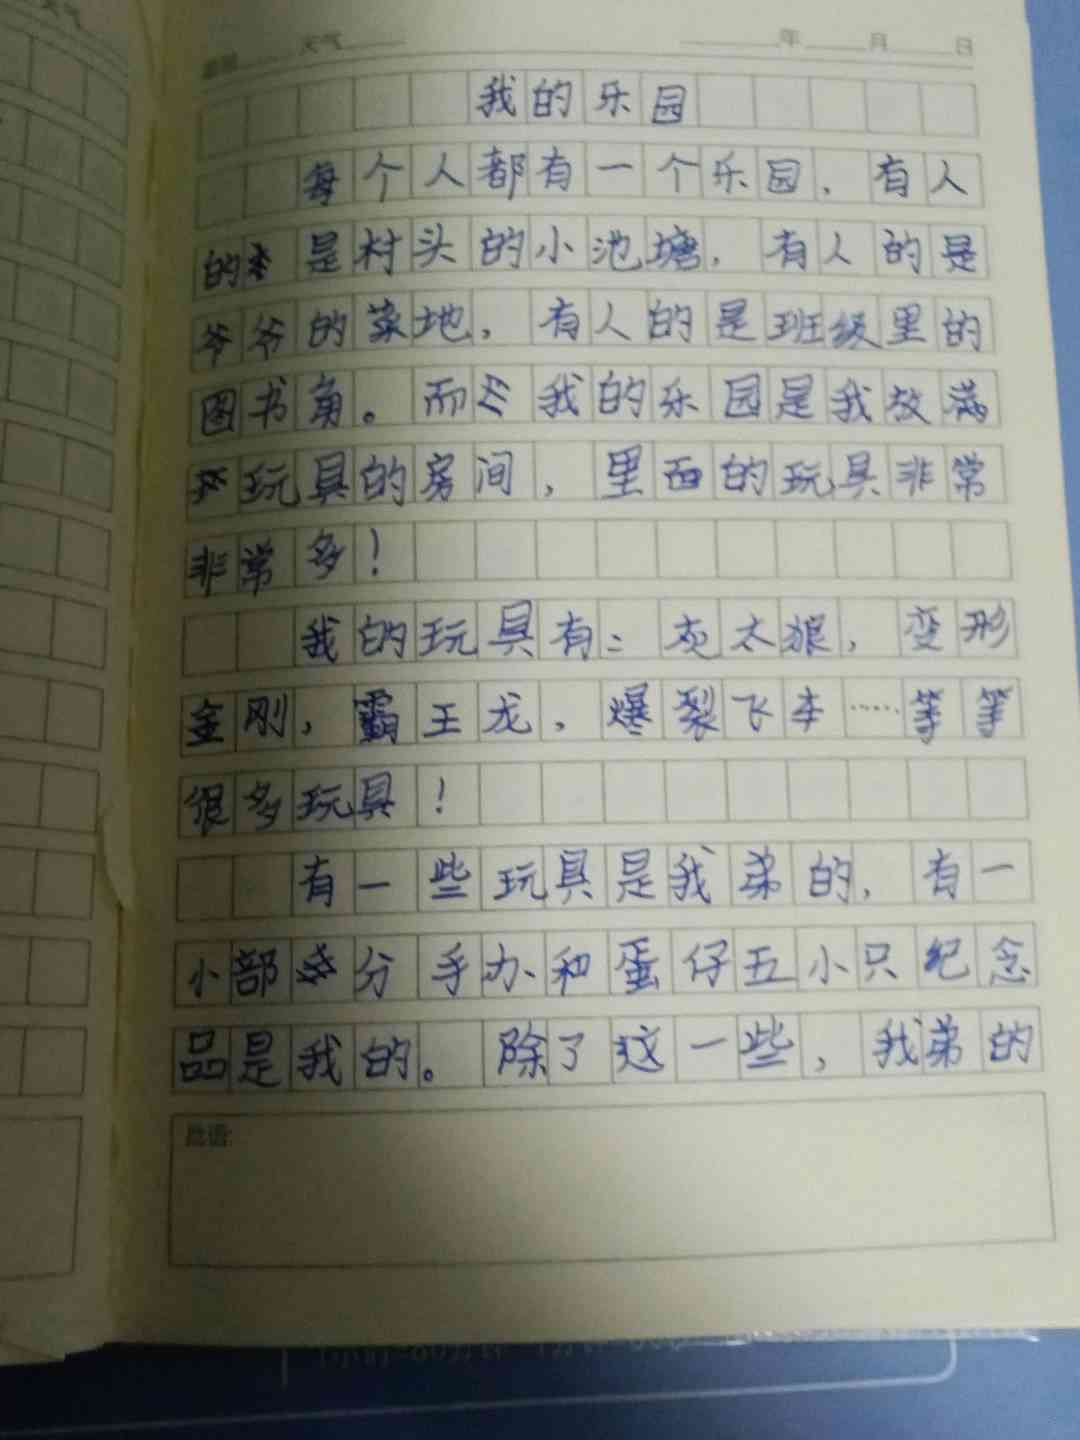 天气
星期 天气 年 月 日
我的乐园
每个人都有一个乐园，有人
的是村头的小池塘，有人的是
爷爷的菜地，有人的是班级里的
图书角。而我的乐园是我放满
玩具的房间，里面的玩具非常
非常多！
我的玩具有：灰太狼，变形
金刚，霸王龙，爆裂飞车……等等
很多玩具！
有一些玩具是我弟的，有一
小部分手办和蛋仔五小只纪念
品是我的。除了这一些，我弟的
批语: